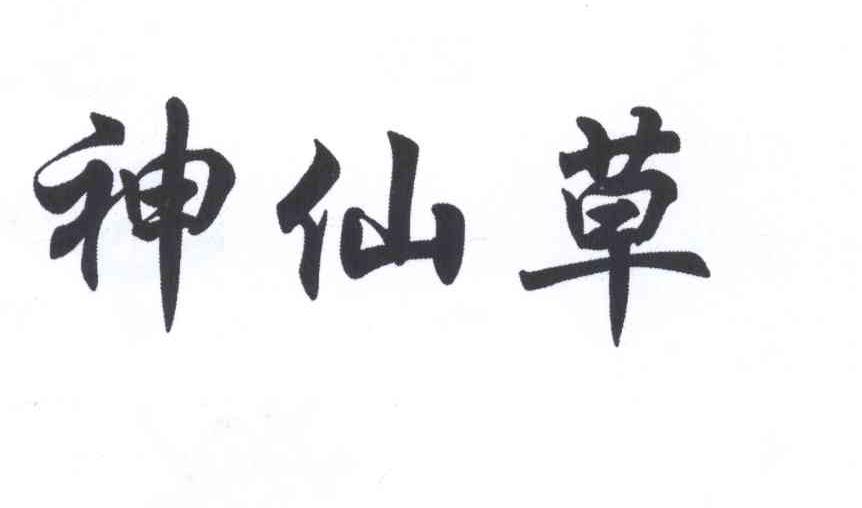 神仙草